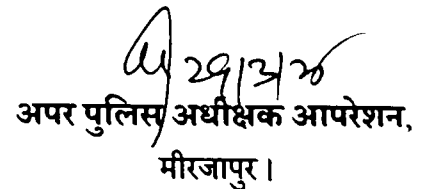 अपर पुलिस अधीक्षक आपरेशन,
मीरजापुर।